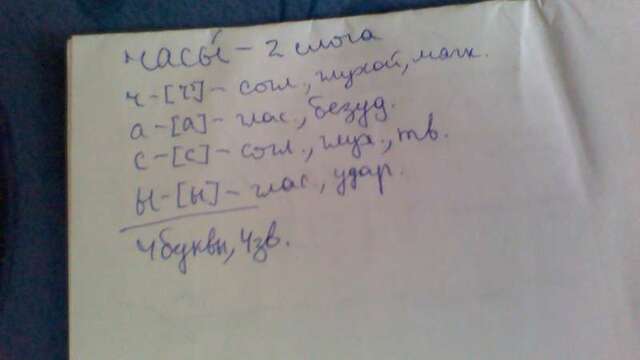 часы́ – 2 слога
ч – [ч'] – согл., глухой, мягк.
а – [а] – глас., безуд.
с – [с] – согл., глух., тв.
ы – [ы] – глас., удар.
4 буквы, 4 зв.